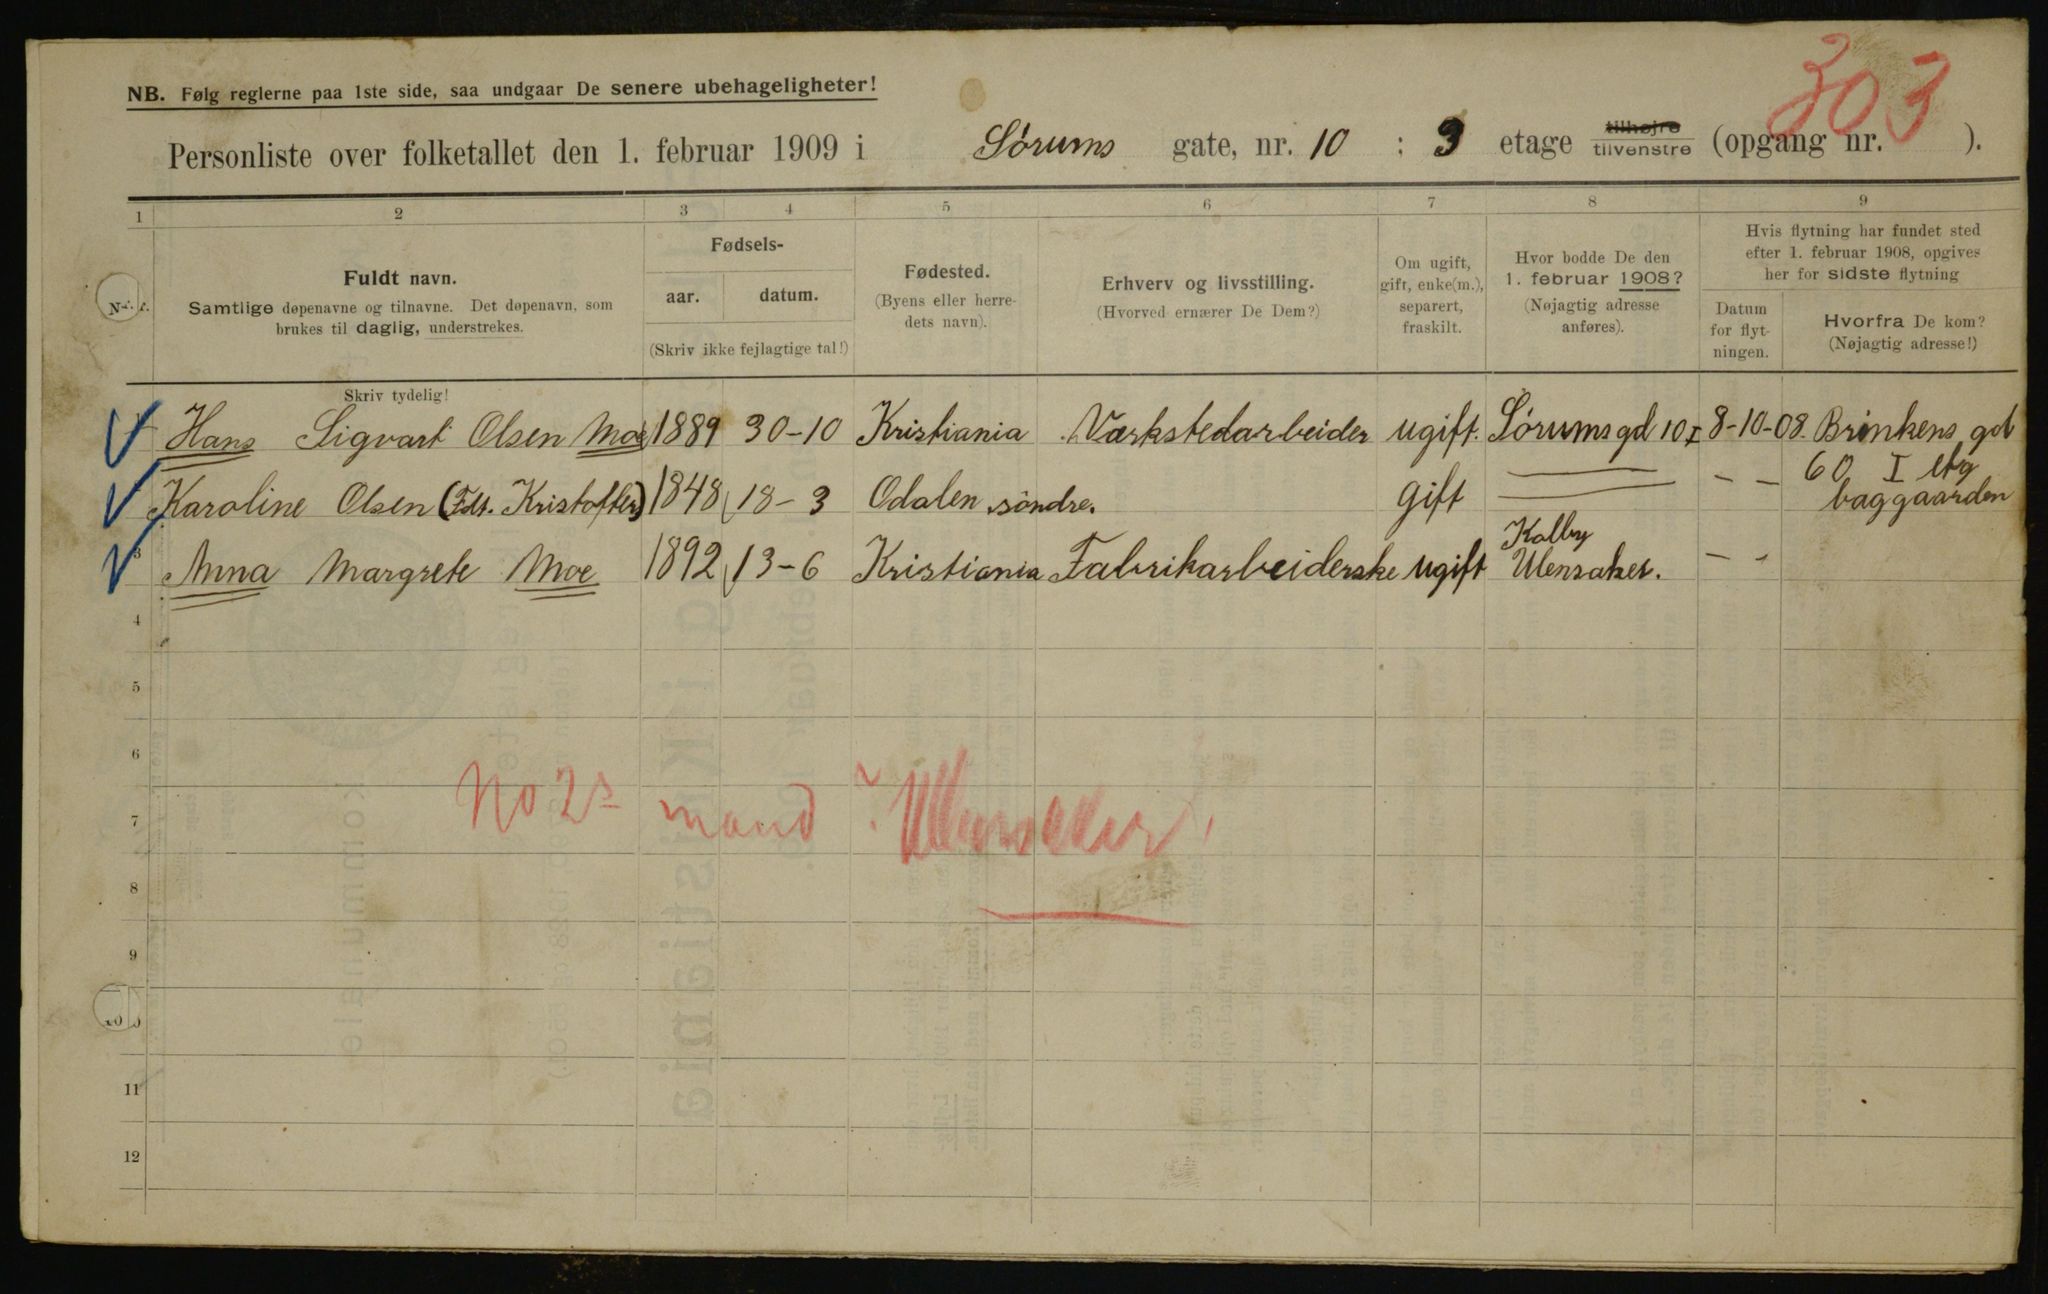 303
NB. Følg reglerne paa 1ste side, saa undgaar De senere ubehageligheter!
Personliste over folketallet den 1. februar 1909 i Sørums gate, nr. 10 : 3 etage tilhøjre tilvenstre (opgang nr. ).
1 2 3 4 5 6 7 8 9
Nr. Fuldt navn. Samtlige døpenavne og tilnavne. Det døpenavn, som brukes til daglig, understrekes.
Fødsels- aar. datum. (Skriv ikke fejlagtige tal!)
Fødested. (Byens eller herredets navn).
Erhverv og livsstilling. (Hvorved ernærer De Dem?)
Om ugift, gift, enke(m.), separert, fraskilt.
Hvor bodde De den 1. februar 1908? (Nøjagtig adresse anføres).
Hvis flytning har fundet sted efter 1. februar 1908, opgives her for sidste flytning
Datum for flytningen. Hvorfra De kom? (Nøjagtig adresse!)
Skriv tydelig!
Hans Sigvart Olsen Moe 1889 30-10 Kristiania Værkstedarbeider ugift. Sørumsgd 10 I 8-10-08. Brinkens gd
60 I etg
Karoline Olsen (Født. Kristoffer) 1848 18-3 Odalen søndre. gift — - - baggaarden
Kolby
3 Anna Margrete Moe 1892 13-6 Kristiania Fabrikarbeiderske ugift Ulensaker. - -
4
5
6
No 2s mand ? Ullensaker!
7
8
9
10
11
12